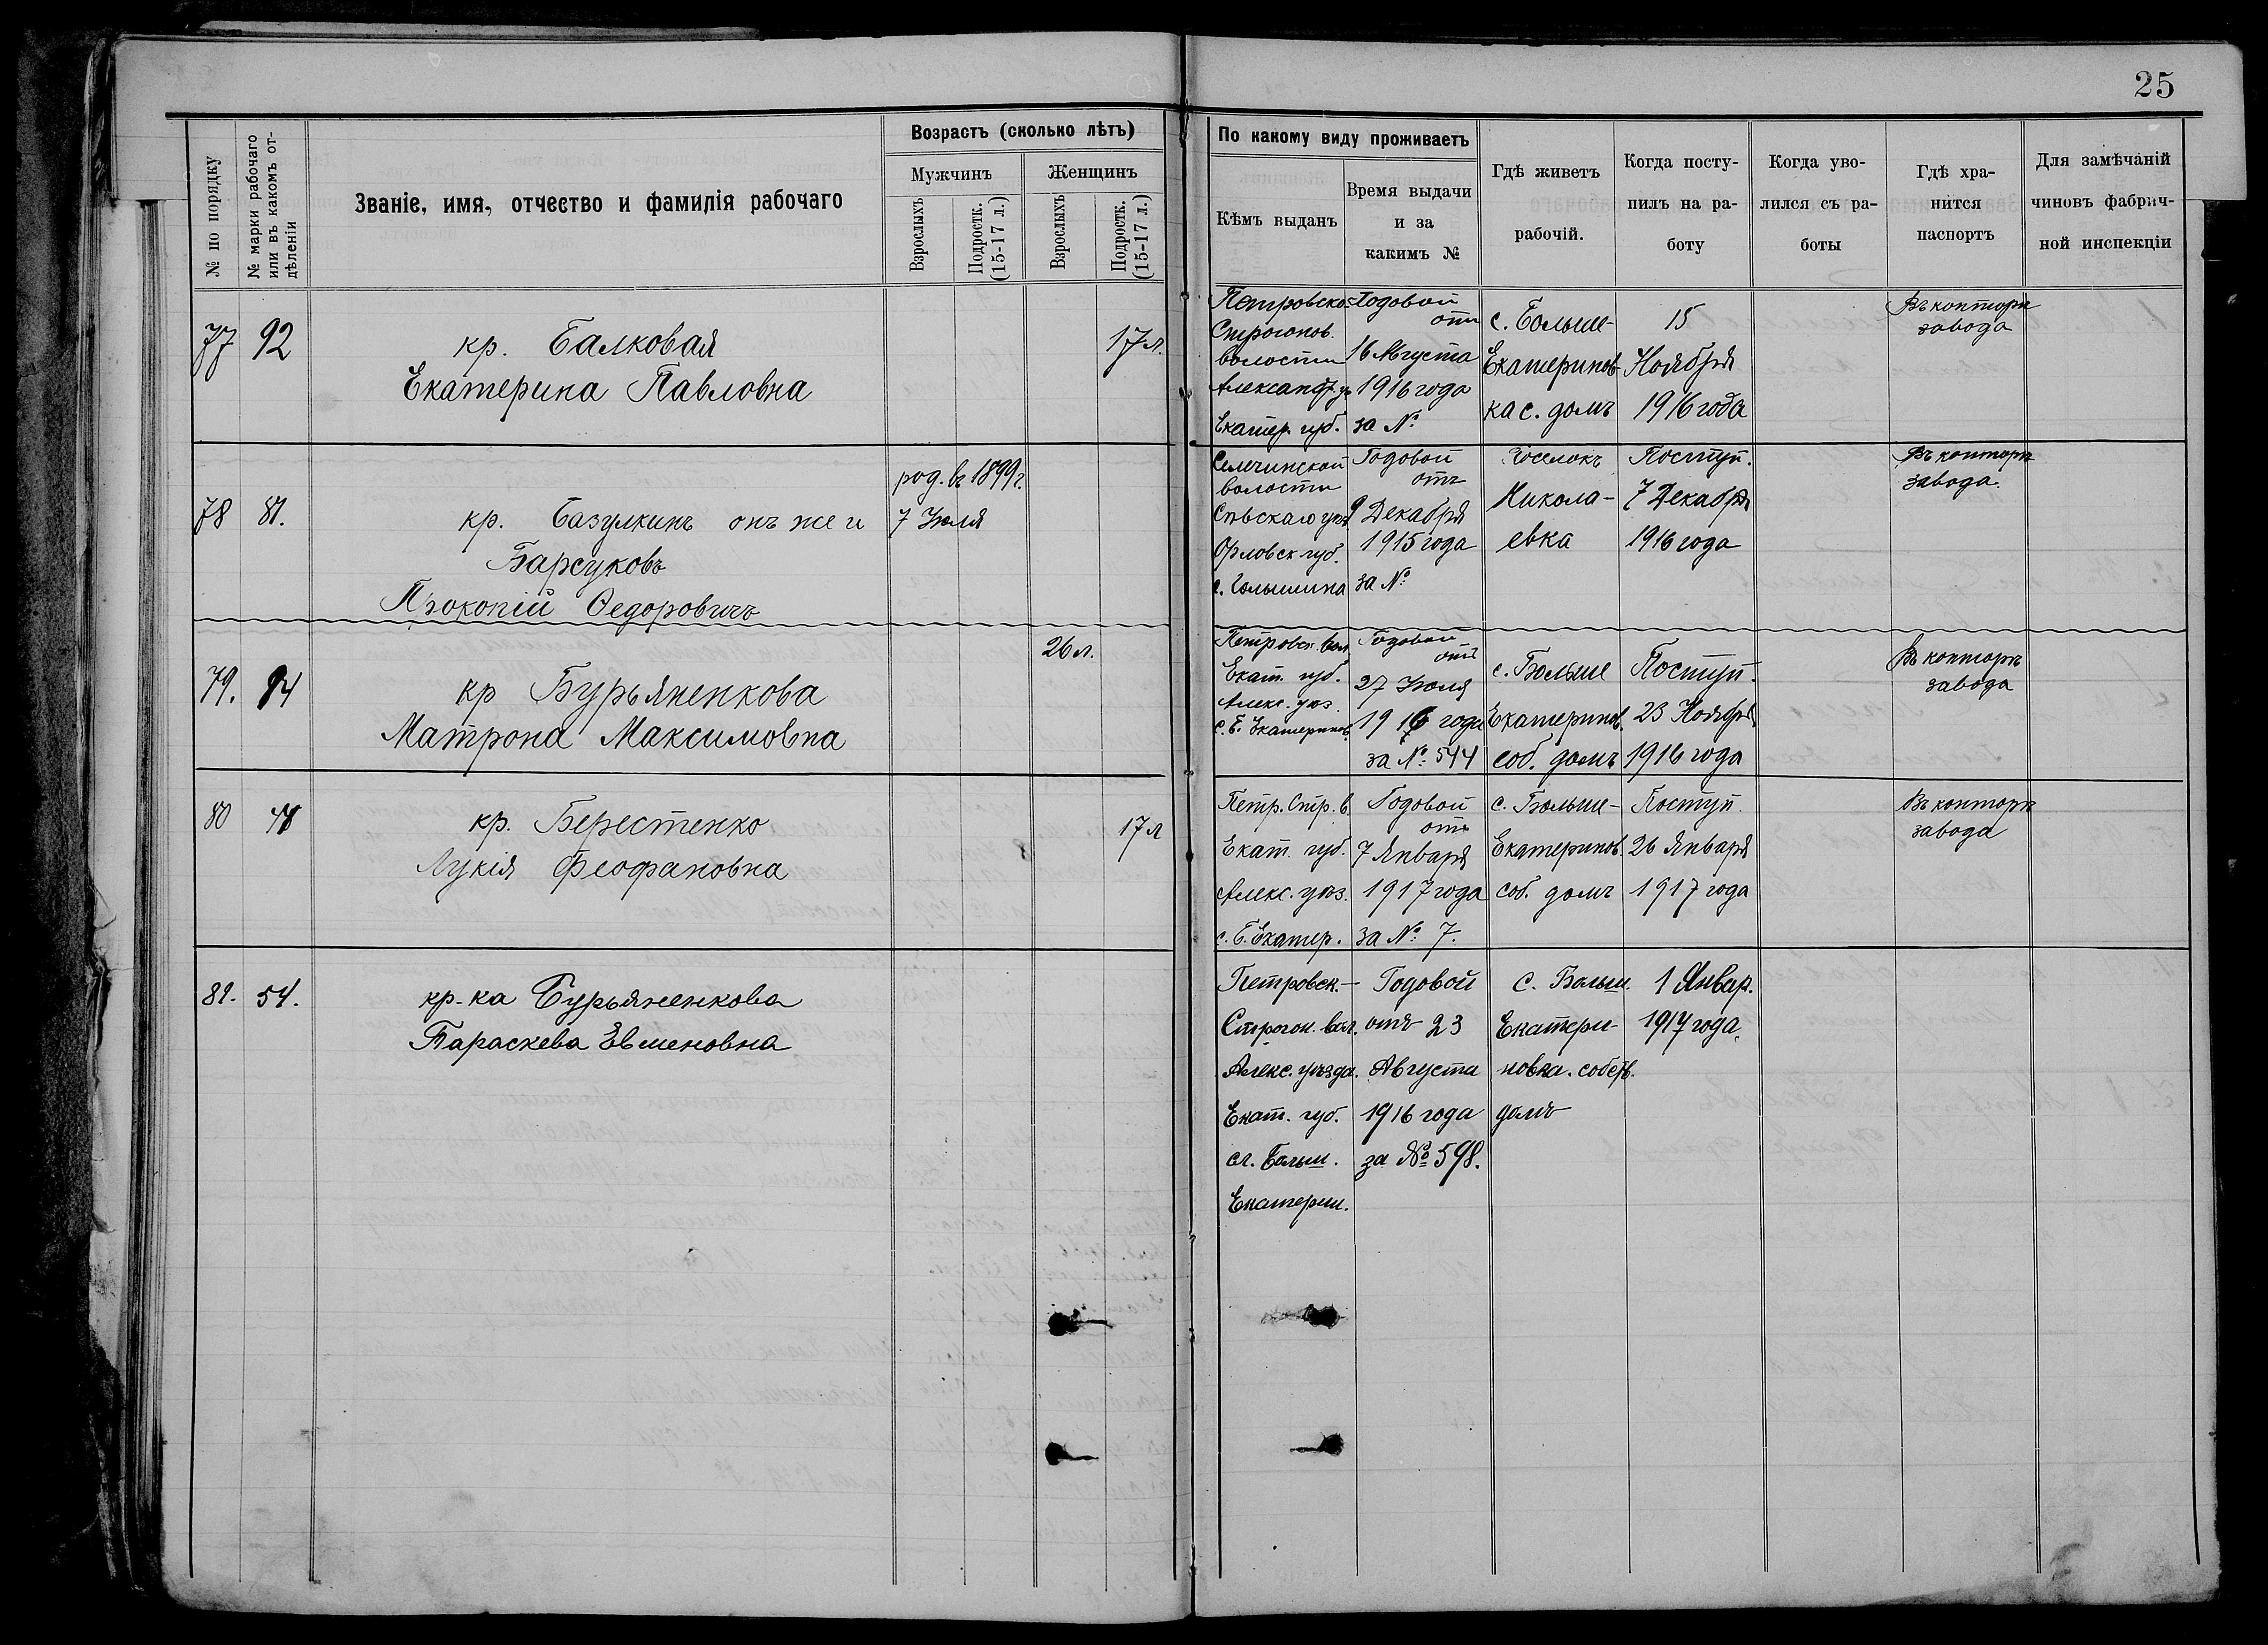 25
№ по порядку
№ марки рабочаго или въ какомъ отдѣленіи
Званіе, имя, отчество и фамилія рабочаго
Возрастъ (сколько лѣтъ)
Мужчинъ
Женщинъ
Взрослыхъ
Подростк. (15-17 л.)
Взрослыхъ
Подростк. (15-17 л.)
По какому виду проживаетъ
Кѣмъ выданъ
Время выдачи
и за
какимъ №
Гдѣ живетъ
рабочій.
Когда посту-
пилъ на ра-
боту
Когда уво-
лился съ ра-
боты
Гдѣ хра-
нится
паспортъ
Для замѣчаній
чиновъ фабрич-
ной инспекціи
77
92
кр. Балковая
Екатерина Павловна
17 л.
Петровско-
Строгонов.
волости
Александр. у.
Екатер. губ.
Годовой
отъ
16 Августа
1916 года
за №
с. Больше-
Екатеринов-
ка с. домъ
15
Ноября
1916 года
Въ конторѣ
завода
78
81.
кр. Базулкинъ онъ же и
Барсуковъ
Прокопій Ѳедоровичъ
род. въ 1899 г.
7 Июля
волости
Сѣвскаго уѣз.
Орловск губ.
Годовой
отъ
9 Декабря
1915 года
за №
Поселокъ
Никола-
евка
Поступ.
7 Декабря
1916 года
Въ конторѣ
завода.
79.
94
кр Бурьяненкова
Матрона Максимовна
26 л.
Петровск. вол.
Екат. губ.
Алекс. уѣз.
с. Б. Екатеринов.
Годовой
отъ
27 Июля
1916 года
за № 544
с. Больше
Екатеринов.
соб. домъ
Поступ.
23 Ноября
1916 года
Въ конторѣ
завода
80
кр. Берестенко
Лукія Феофановна
17 л
Петр. Стр. в.
Екат. губ.
Алекс. уѣз.
с. Б. Екатер.
Годовой
отъ
7 Января
1917 года
за № 7.
с. Больше-
Екатеринов.
соб. домъ
Поступ.
26 Января
1917 года
Въ конторѣ
завода
81.
54.
кр-ка Бурьяненкова
Параскева Евменовна
Петровск.-
Строгон. вол.
Алекс. уѣзда.
Екат. губ.
сл. Больш.
Екатерин.
Годовой
отъ 23
Августа
1916 года
за № 598.
с. Больш.
Екатери-
новка. собств.
домъ
1 Январ.
1917 года.